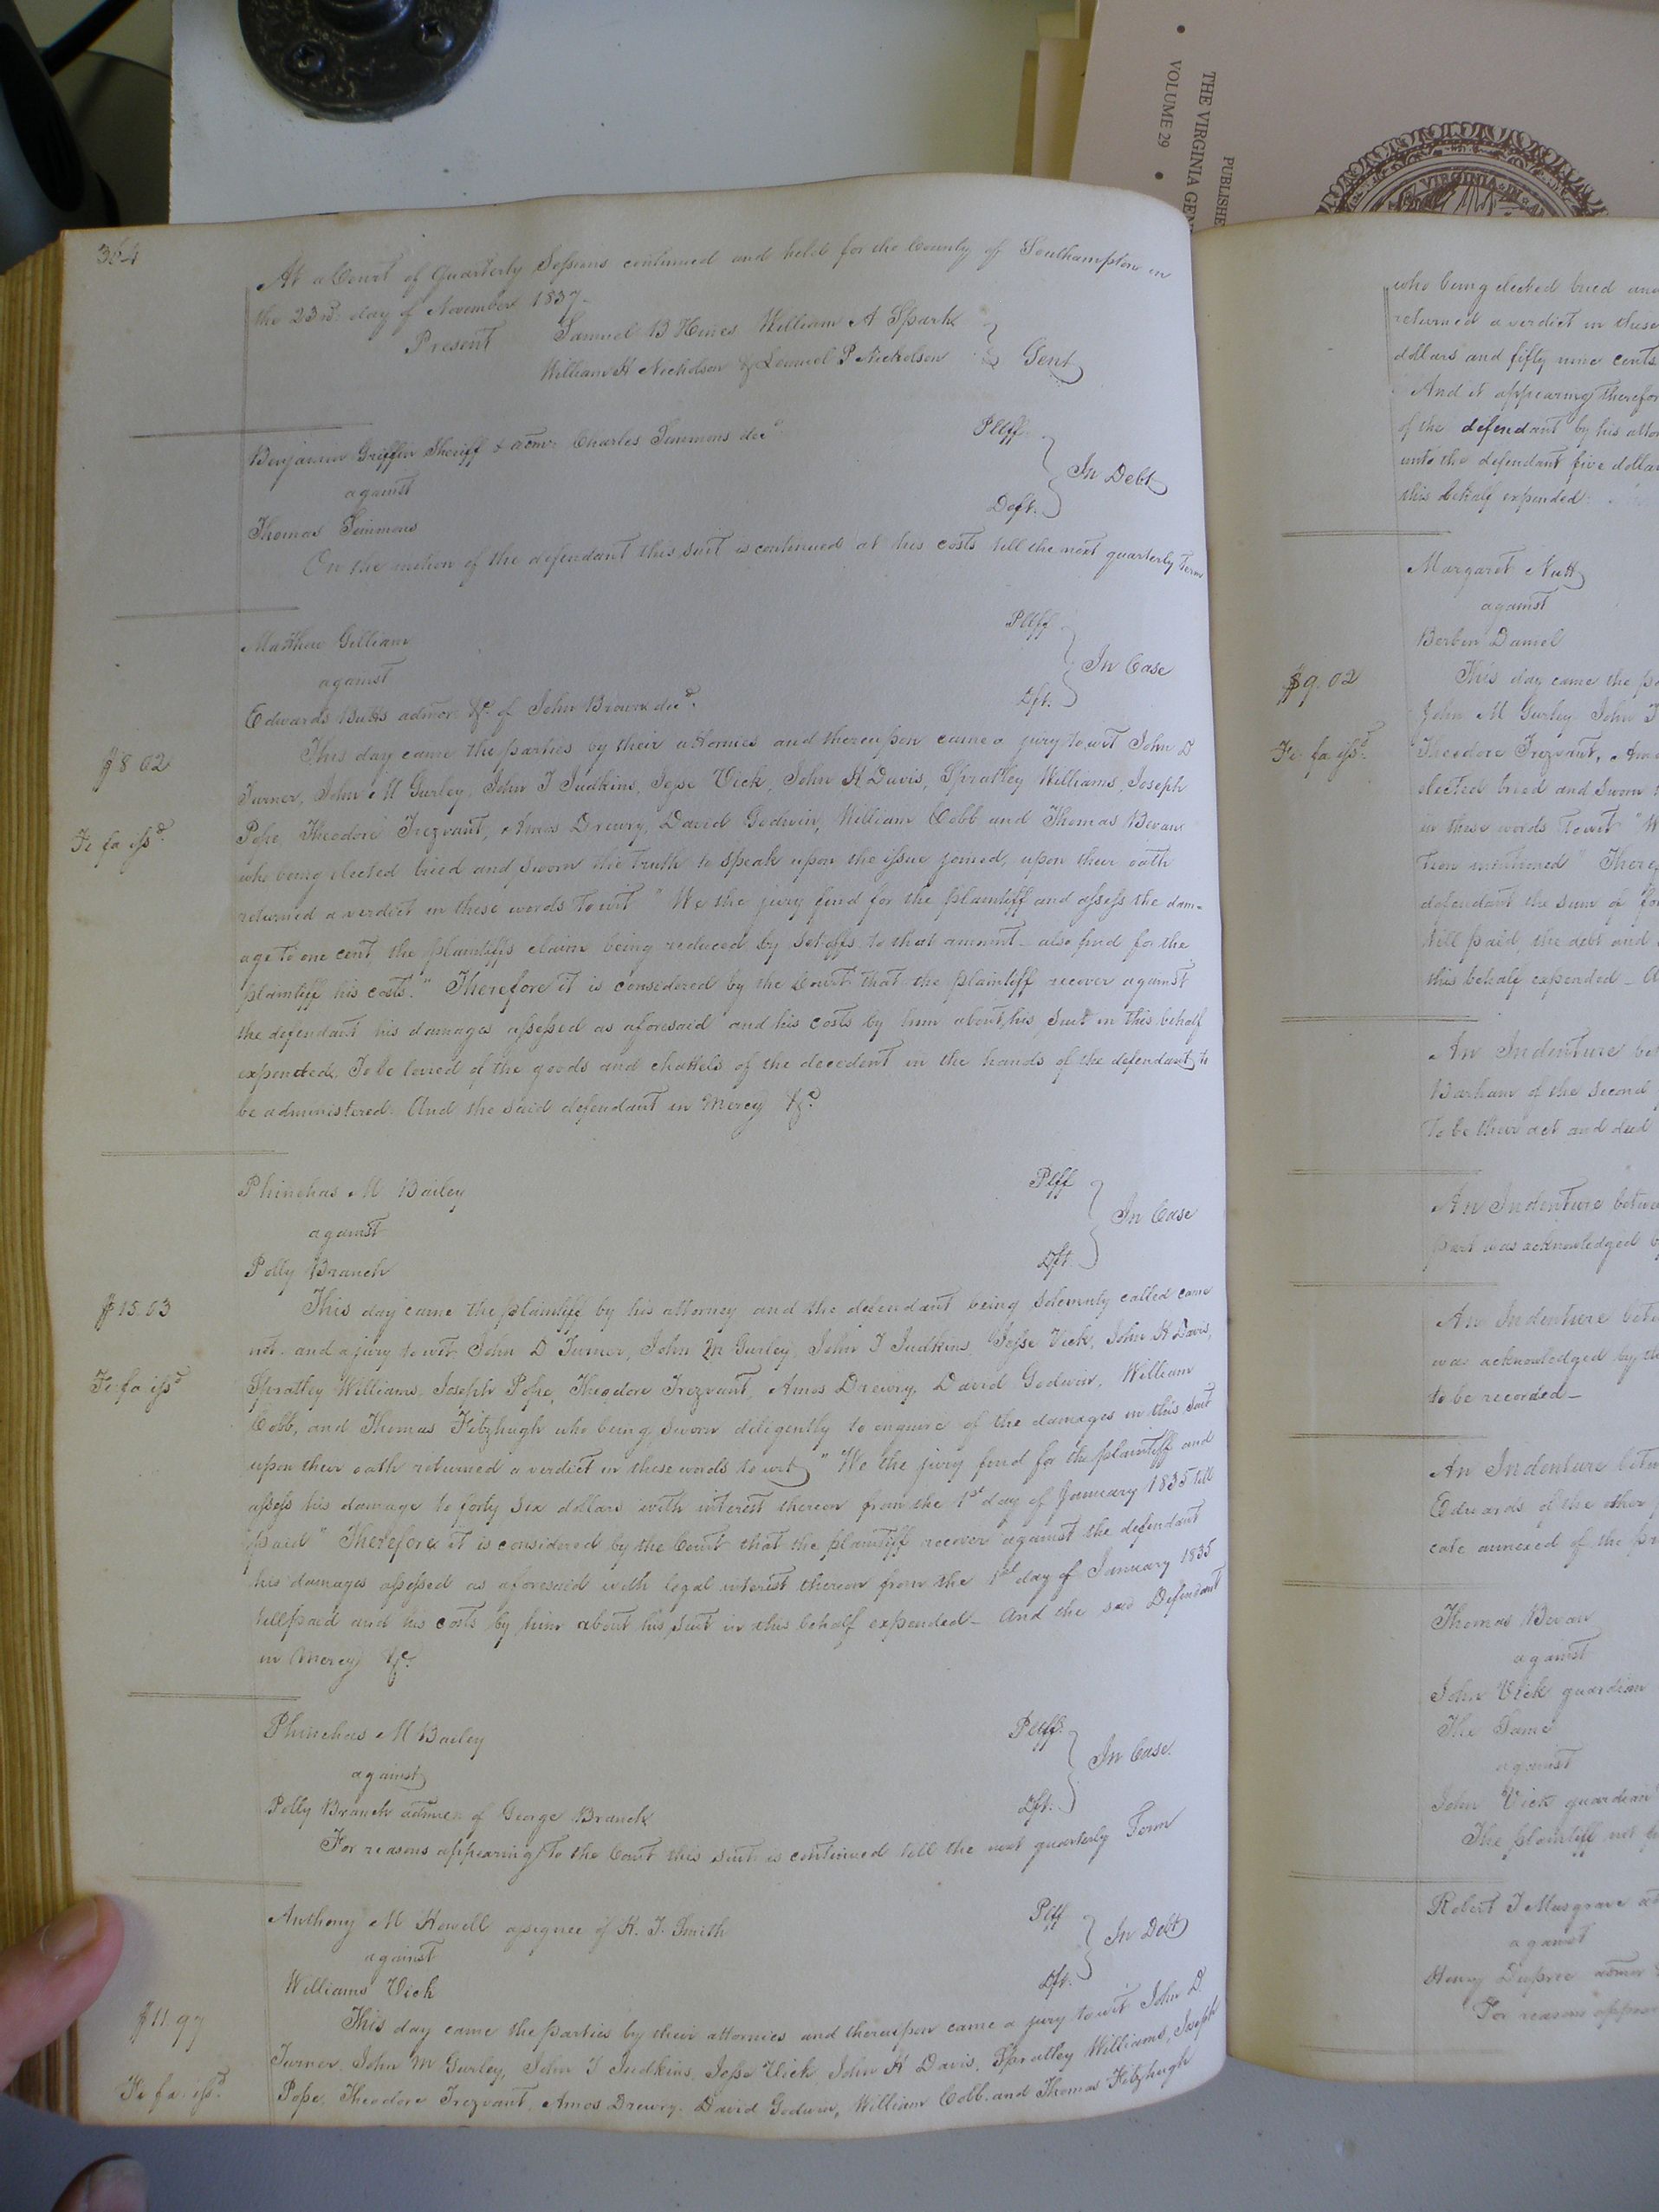 THE VIRGINIA GEN
VOLUME 29 •
PUBLISHE
VIRGINIA
364
At a Court of Quarterly Sessions continued and held for the County of Southampton on
the 23rd. day of November 1837–
Present Samuel B Hines William A Spark
William H Nicholson & Lemuel P Nicholson } Gent
Benjamin Griffin Sheriff & admr. Charles Simmons decd Pltff
against } In Debt
Thomas Simmons Deft.
On the motion of the defendant this suit is continued at his costs till the next quarterly Term
Matthew Gilliam Pltff
against } In Case
Edwards Butts admor. &c. of John Brown decd. Dft.
$8.02
This day came the parties by their attornies and thereupon came a jury to wit John D
Turner, John M Gurley, John T Judkins, Jesse Vick, John H Davis, Spratley Williams, Joseph
Fi fa issd.
Pope, Theodore Trezvant, Amos Drewry, David Godwin, William Cobb and Thomas Bevan
who being elected tried and sworn the truth to speak upon the issue joined, upon their oath
returned a verdict in these words to wit "We the jury find for the plaintiff and assess the dam-
age to one cent, the plaintiffs claim being reduced by setoffs to that amount – also find for the
plaintiff his costs." Therefore it is considered by the Court that the plaintiff recover against
the defendant his damages assessed as aforesaid and his costs by him about his suit in this behalf
expended. To be levied of the goods and chattels of the decedent in the hands of the defendant to
be administered. And the said defendant in Mercy &c.
Phinehas M Bailey Plff
against } In Case
Polly Branch Dft.
$15.03
This day came the plaintiff by his attorney and the defendant being solemnly called came
not. and a jury to wit, John D Turner, John M Gurley, John T Judkins, Jesse Vick, John H Davis,
Fi fa issd
Spratley Williams, Joseph Pope, Theodore Trezvant, Amos Drewry, David Godwin, William
Cobb, and Thomas Fitzhugh who being sworn diligently to enquire of the damages in this suit
upon their oath returned a verdict in these words to wit "We the jury find for the plaintiff and
assess his damage to forty six dollars with interest thereon from the 1st day of January 1835 till
paid" Therefore it is considered by the Court that the plaintiff recover against the defendant
his damages assessed as aforesaid with legal interest thereon from the 1st day of January 1835
till paid and his costs by him about his suit in this behalf expended – And the said Defendant
in Mercy &c.
Phinehas M Bailey Pltff.
against } In Case.
Polly Branch admrx of George Branch Dft.
For reasons appearing to the Court this suit is continued till the next quarterly Term
Anthony M Howell assignee of K. T. Smith Plff
against } In Debt
Williams Vick Dft.
$11.97
This day came the parties by their attornies and thereupon came a jury to wit John D.
Turner, John M Gurley, John T Judkins, Jesse Vick John H Davis, Spratley Williams, Joseph
Fi fa. issd.
Pope, Theodore Trezvant, Amos Drewry, David Godwin, William Cobb. and Thomas Fitzhugh
who being elected tried and
returned a verdict in these
dollars and fifty nine cents
And it appearing therefor
of the defendant by his attor
unto the defendant five dollar
this behalf expended.
Margaret Nutt
against
Berbin Daniel
$9.02
This day came the pa
John M Gurley John T
Fi. fa issd.
Theodore Trezvant, Amo
elected tried and sworn
in these words to wit "W
tion mentioned" Theref
defendant the sum of fo
till paid, the debt and
this behalf expended –
An Indenture bet
Barham of the second
to be their act and deed
An Indenture betwe
part was acknowledged b
An Indenture betw
was acknowledged by th
to be recorded –
An Indenture betw
Edwards of the other
cate annexed of the pr
Thomas Bevan
against
John Vick guardian
The Same
against
John Vick guardian
The plaintiff not
Robert T Musgrave
against
Henry Dupree admor
For reasons appear